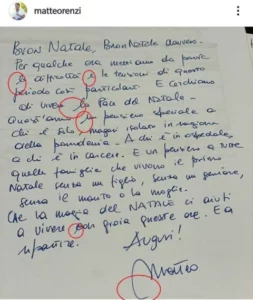 matteorenzi
Buon Natale, Buon Natale davvero.
Per qualche ora mettiamo da parte
le difficoltà e le tensioni di questo
periodo così particolare. E cerchiamo
di vivere la Pace del Natale.
Quest'anno un pensiero speciale a
chi è solo, magari isolato in ragione
della pandemia. A chi è in ospedale,
a chi è in carcere. E un pensiero a tutte
quelle famiglie che vivono il primo
Natale senza un figlio, senza un genitore,
senza il marito o la moglie.
Che la magia del NATALE ci aiuti
a vivere con gioia queste ore. E a
ripartire.
Auguri!
Matteo